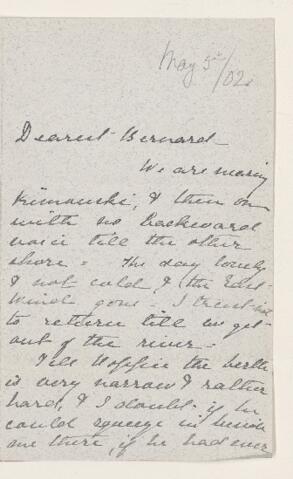 May 5th/02.
Dearest Bernard
We are nearing
Rimouski, & then on
with no backward
voice till the other
shore - The day lovely
& not cold, & the East
Wind gone - I trust not
to return till we get
out of the river -
Tell Hoffie the berth
is very narrow & rather
hard, & I doubt if he
could squeeze in beside
me there, if he had ever